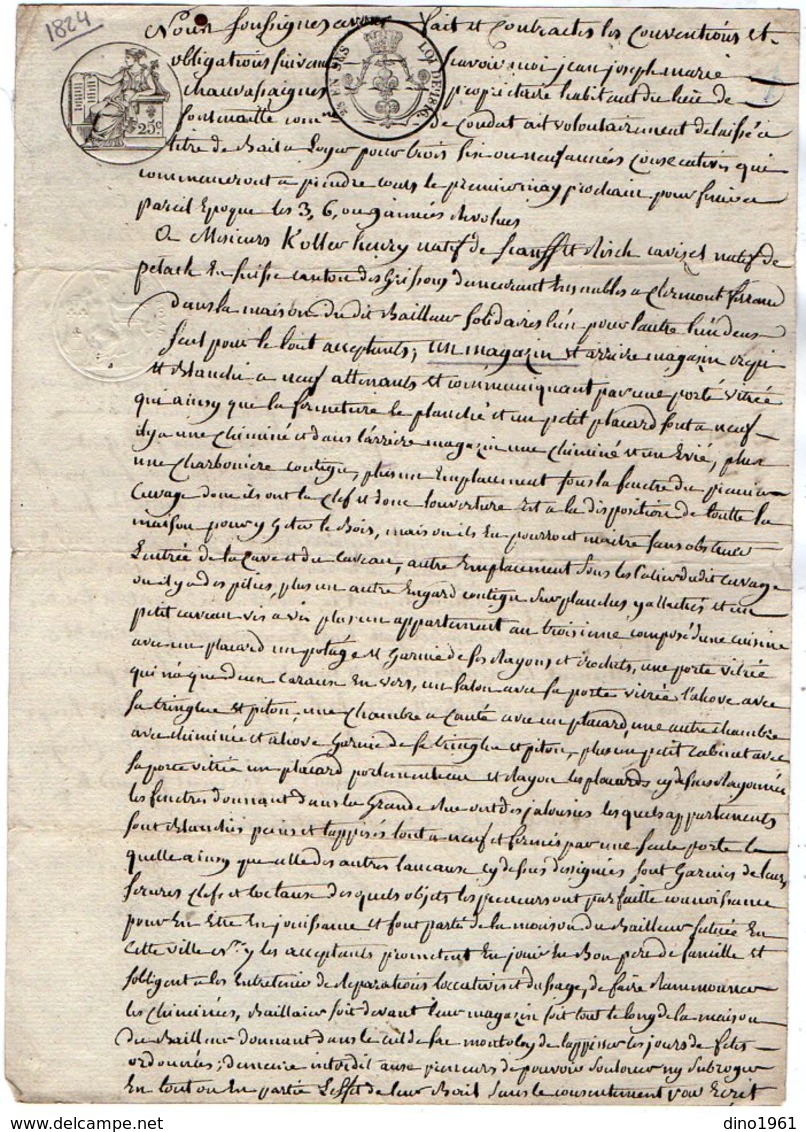 1824
Nous soussignes avons fait et contractés les conventions et
obligations suivantes savoir moi jean joseph marie
chauvassaignes propriétaire habitant du lieu de
25 EN SUS LOI DE 1816
25c
fontmaille comne de condat ait volontairement delaissé a
titre de Bail a Loyer pour trois six ou neuf années consecutives qui
commanceront a prendre cours le premier may prochain pour finir a
pareil Epoque les 3, 6, ou 9 années Revolues
a Messieurs Koller henry natif de et natif de
En suisse canton des Grissons demeurant Ensembles a Clermont ferrand
dans la maison du dit Bailleur Solidaires l'un pour l'autre l'un deux
seul pour le tout acceptants, un magazin et arriere magazin crepi
et Blanchi a neuf attenants et communiquant par une porte vitrée
qui ainsy que la fermeture le planché et un petit placard sont a neuf
il y a une cheminé et dans l'arriere magazin une cheminé et un Evié, plus
une charboniere contigue, plus un Emplacement sous la fenetre du premier
Cuvage dont ils ont la clef et dont l'ouverture Est a la disposition de toutte la
maison pour y Geter le Bois, mais ou ils En pourront mettre sans obstruer
L'entrée de la Cave et du caveau, autre Emplacement sous les Calier du dit cuvage
ou il y a des piliés, plus un autre Engard contigu sur planches y attachés et un
petit caveau vis a vis plus un appartement au troisieme composé d'une cuisine
avec un placard un potagé et Garnie de ses Rayons et crochets, une porte vitrée
qui n'a que d'un careaux En vers, un salon avec sa porte vitrée l'alcove avec
sa tringle et piton, une chambre a couté avec un placard, une autre chambre
avec cheminée et alcove Garnie de sa tringle et piton, plus un petit cabinet avec
sa porte vitrée un placard portementeau et Rayon les placards cy dessus Rayonnés
les fenetres donnant dans la Grande Rue ont des jalousies lesquels appartements
sont Blanchis peints et tappissés tout a neuf et fermés par une seule porte la
quelle ainsy que celle des autres cy dessus designées sont Garnies de leurs
serures clefs et desquels objets les preneurs ont parfaitte connoissance
pour En Etre En jouissance et font partie de la maison du Bailleur située En
cette ville y les acceptants promettent En jouir En Bon pere de famille et
s'obligent a les Entretenir de Reparations locatives et d'usage, de faire Rammoner
les cheminées, Baillaier soit devant leur magazin soit tout le long de la maison
du Bailleur donnant dans le cul de sac montoloy de tappisser les jours de fetes
ordonnées; demeure interdit aux preneurs de pouvoir Soulouer ny Subroger
En tout ou En partie L'effet de leur Bail Sans le consentement par Ecrit
dino1961